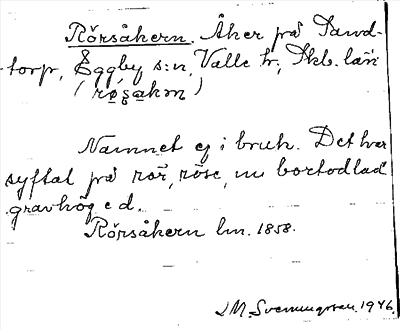 Rörsåkern. Åker på Sand-
torp, Eggby s:n, Valle hr, Skb. län
(rø̱ʂa̱km)
Namnet ej i bruk. Det har
syftat på rör, röse, nu bortodlad
gravhög e d.
Rörsåkern lm. 1858.
Svenungsson. 1946.